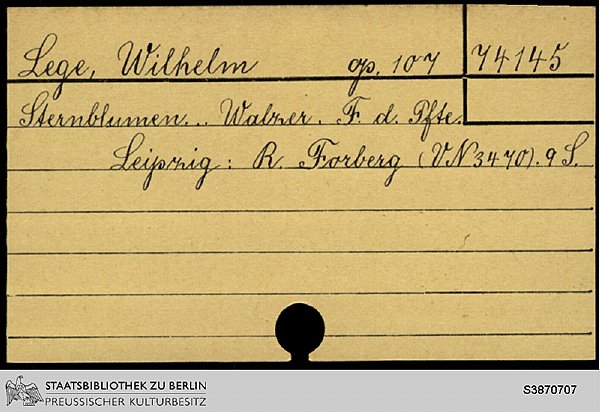 Lege, Wilhelm op. 107 74145
Sternblumen... Walzer. F. d. Pfte.
Leipzig: R. Forberg (VN 3470). 9 S.
STAATSBIBLIOTHEK ZU BERLIN
PREUSSISCHER KULTURBESITZ
S3870707